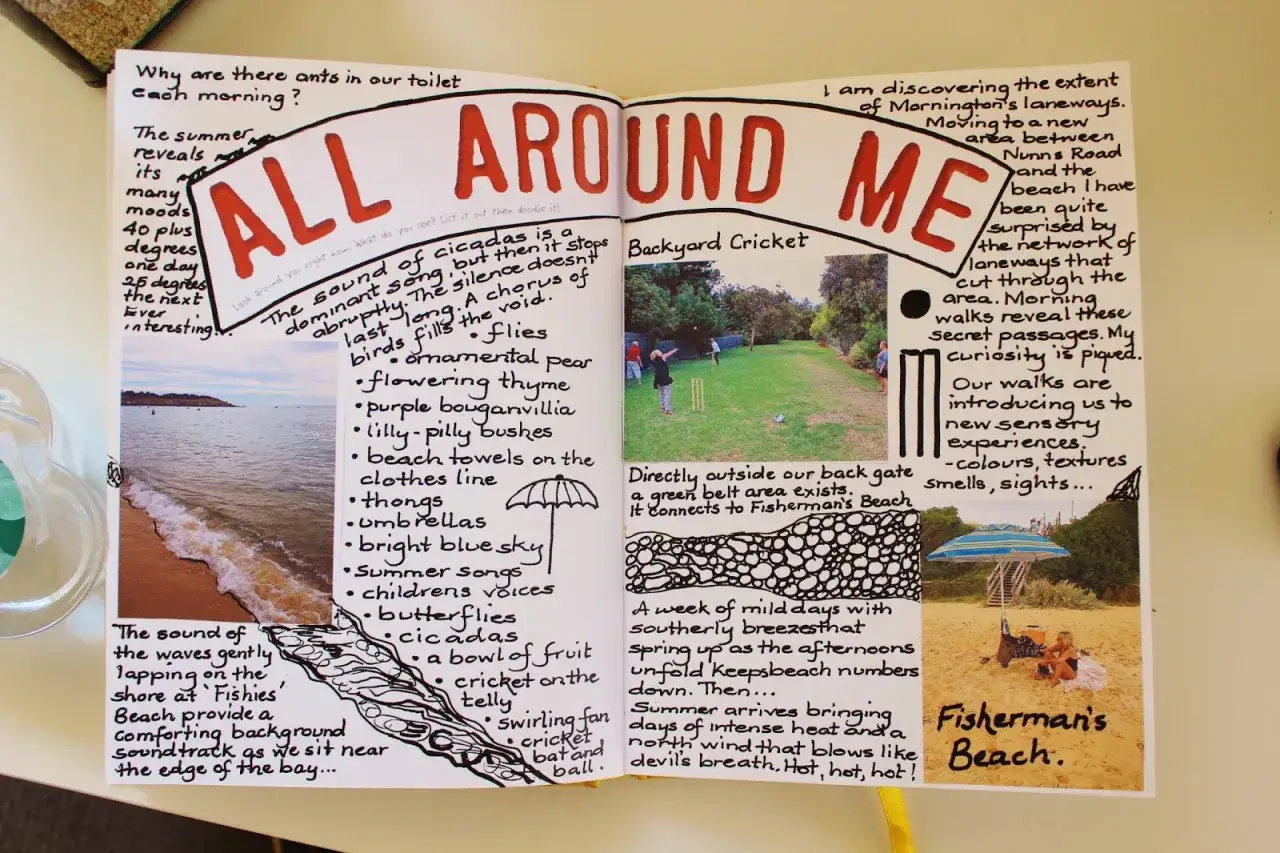 Why are there ants in our toilet
each morning?
ALL AROUND ME
Look around you right now. What do you see? List it out then doodle it!
The summer
reveals
its
many
moods
40 plus
degrees
one day
25 degrees
the next
Ever
interesting...
The sound of cicadas is a
dominant song, but then it stops
abruptly. The silence doesn't
last long. A chorus of
birds fills the void.
• flies
• ornamental pear
• flowering thyme
• purple bouganvillia
• lilly-pilly bushes
• beach towels on the
clothes line
• thongs
• umbrellas
• bright blue sky
• Summer songs
• childrens voices
• butterflies
• cicadas
• a bowl of fruit
• cricket on the
telly
• swirling fan
• cricket
bat and
ball.
The sound of
the waves gently
lapping on the
shore at 'Fishies'
Beach provide a
comforting background
soundtrack as we sit near
the edge of the bay...
I am discovering the extent
of Mornington's laneways.
Moving to a new
area between
Nunns Road
and the
beach I have
been quite
surprised by
the network of
laneways that
cut through the
area. Morning
walks reveal these
secret passages. My
curiosity is piqued.
Our walks are
introducing us to
new sensory
experiences,
-colours, textures
smells, sights...
Backyard Cricket
Directly outside our back gate
a green belt area exists.
It connects to Fisherman's Beach
A week of mild days with
southerly breezes that
spring up as the afternoons
unfold keeps beach numbers
down. Then...
Summer arrives bringing
days of intense heat and a
north wind that blows like
devil's breath. Hot, hot, hot!
Fisherman's
Beach.